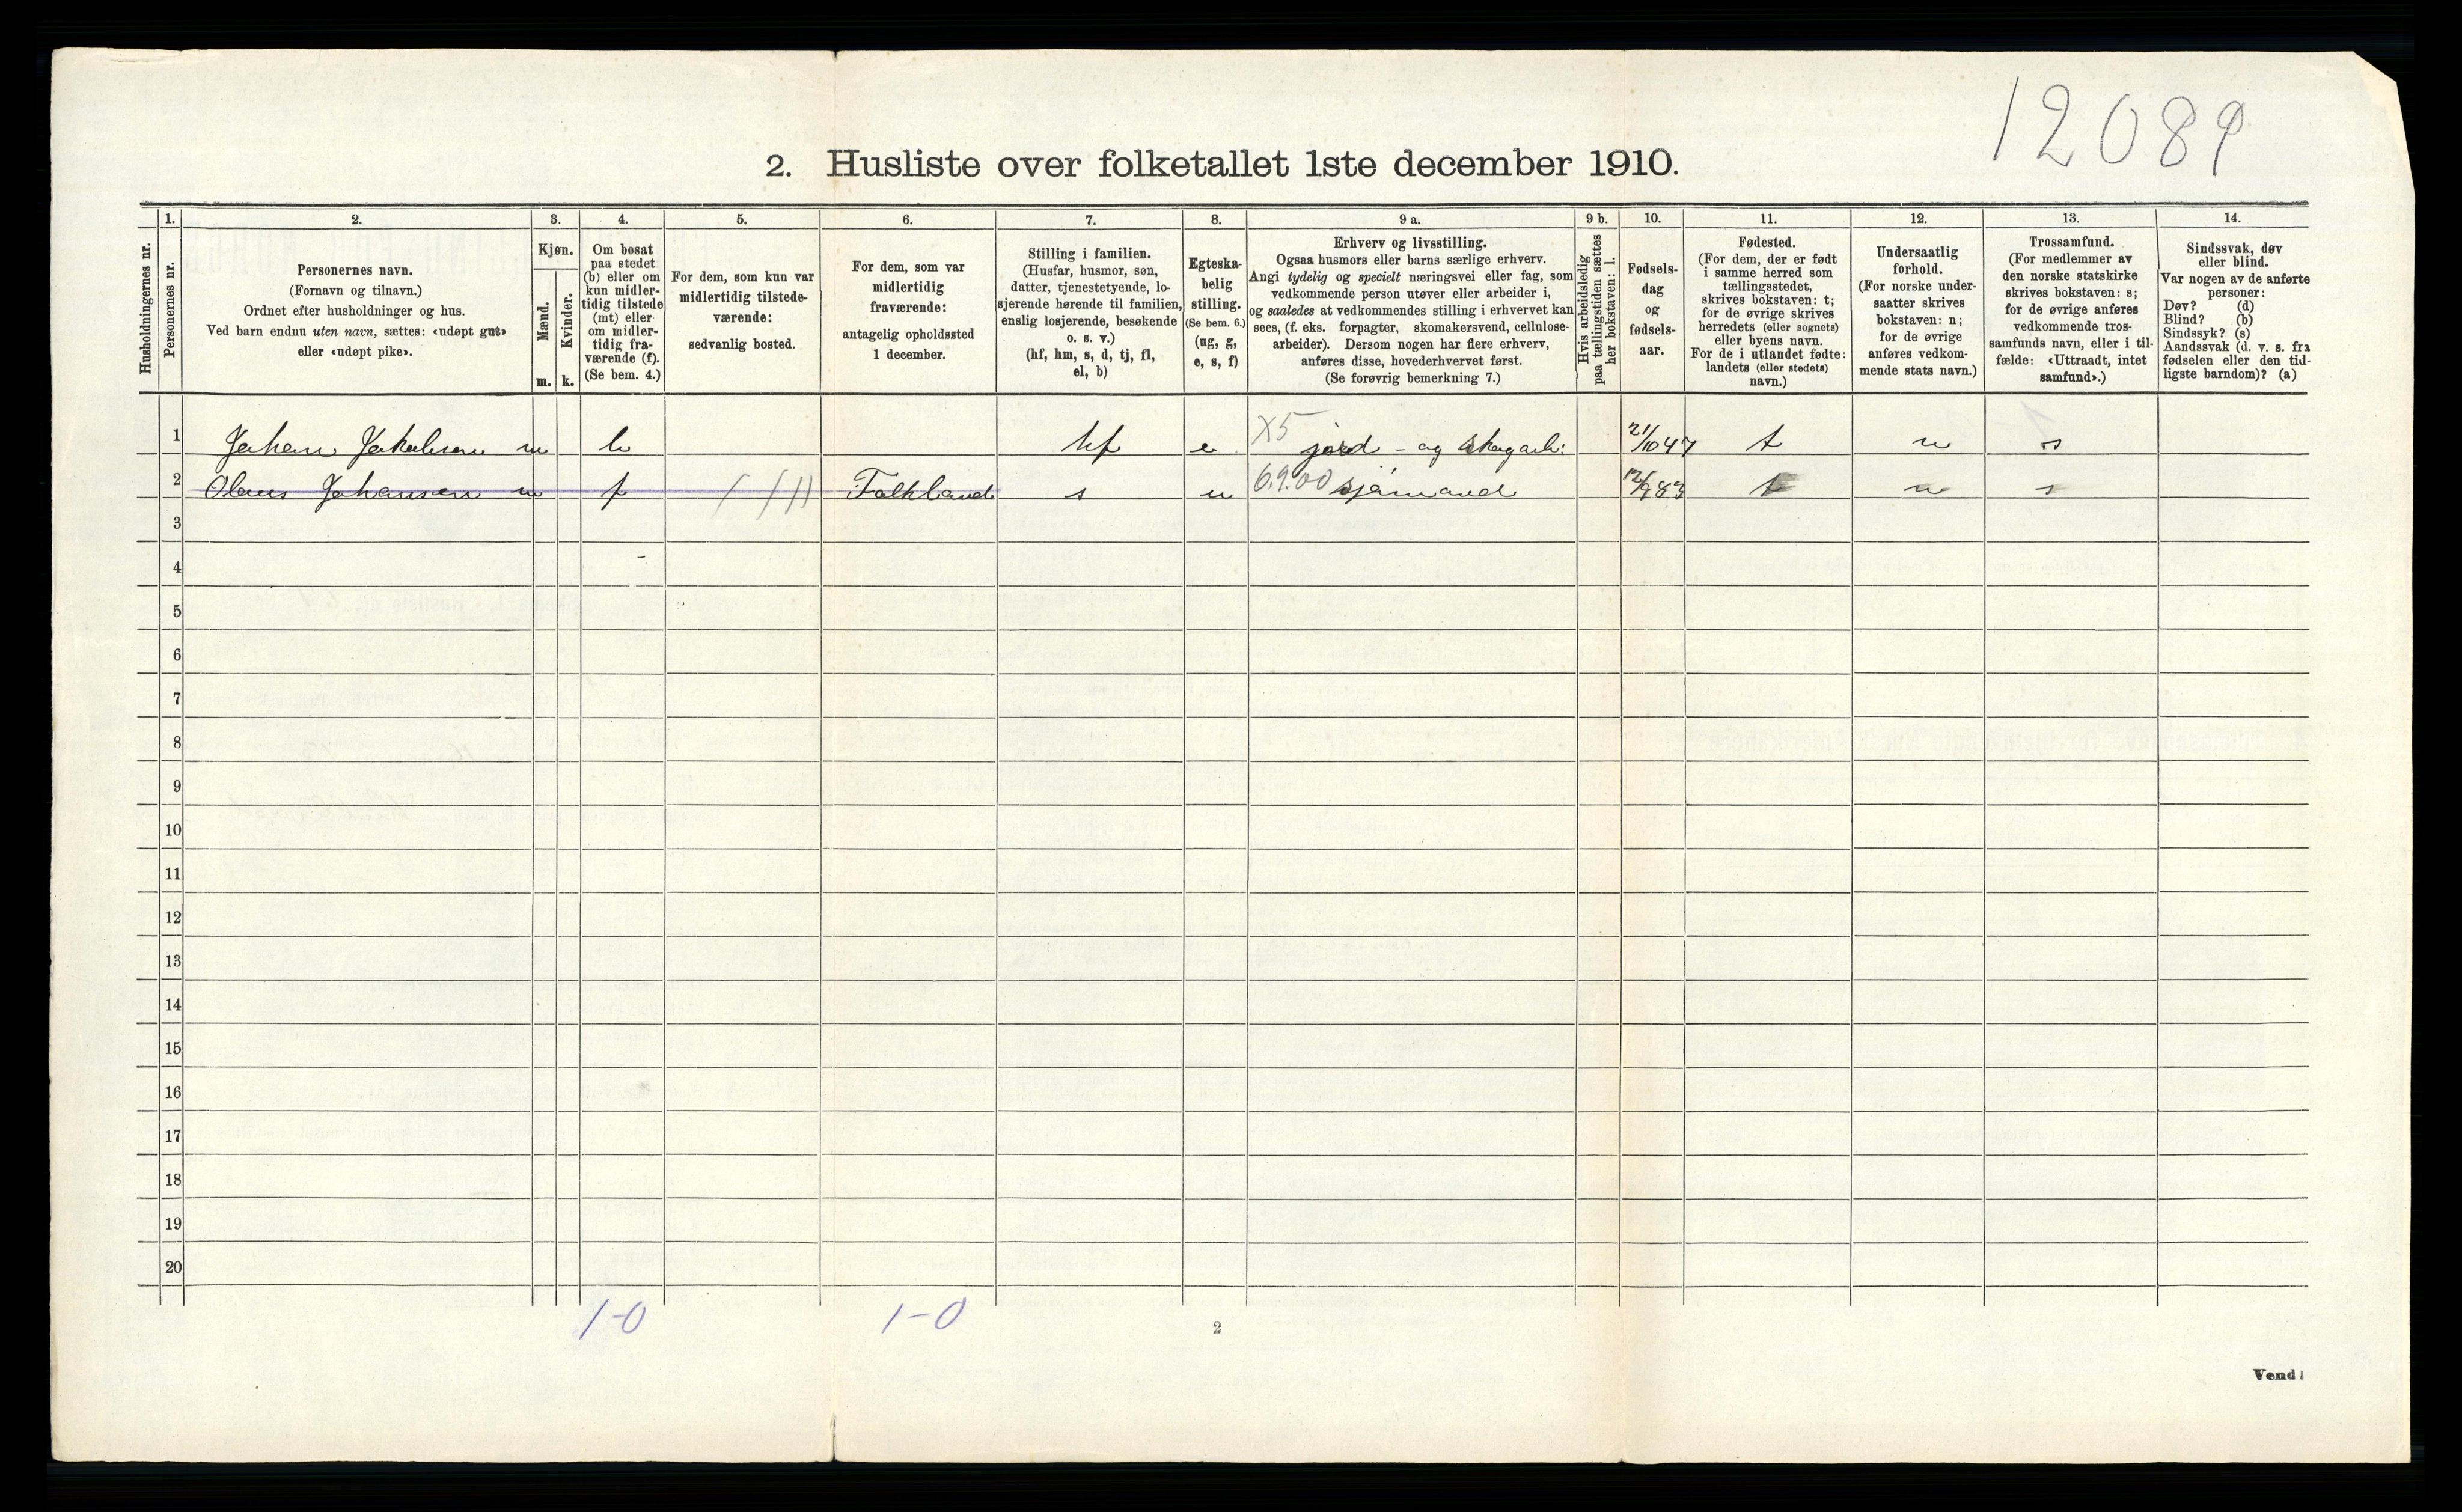 12089
2. Husliste over folketallet 1ste december 1910.
Husholdningernes nr.
1.
Personernes nr.
2.
Personernes navn.
(Fornavn og tilnavn.)
Ordnet efter husholdninger og hus.
Ved barn endnu uten navn, sættes: «udøpt gut»
eller «udøpt pike».
3.
Kjøn.
Mænd.
Kvinder.
m. k.
4.
Om bosat
paa stedet
(b) eller om
kun midler-
tidig tilstede
(mt) eller
om midler-
tidig fra-
værende (f).
(Se bem. 4.)
5.
For dem, som kun var
midlertidig tilstede-
værende:
sedvanlig bosted.
6.
For dem, som var
midlertidig
fraværende:
antagelig opholdssted
1 december.
7.
Stilling i familien.
(Husfar, husmor, søn,
datter, tjenestetyende, lo-
sjerende hørende til familien,
enslig losjerende, besøkende
o. s. v.)
(hf, hm, s, d, tj, fl,
el, b)
8.
Egteska-
belig
stilling.
(Se bem. 6.)
(ug, g,
e, s, f)
9 a.
Erhverv og livsstilling.
Ogsaa husmors eller barns særlige erhverv.
Angi tydelig og specielt næringsvei eller fag, som
vedkommende person utøver eller arbeider i,
og saaledes at vedkommendes stilling i erhvervet kan
sees, (f. eks. forpagter, skomakersvend, cellulose-
arbeider). Dersom nogen har flere erhverv,
anføres disse, hovederhvervet først.
(Se forøvrig bemerkning 7.)
9 b.
Hvis arbeidsledig
paa tællingstiden sættes
her bokstaven: l.
10.
Fødsels-
dag
og
fødsels-
aar.
11.
Fødested.
(For dem, der er født
i samme herred som
tællingsstedet,
skrives bokstaven: t;
for de øvrige skrives
herredets (eller sognets)
eller byens navn.
For de i utlandet fødte:
landets (eller stedets)
navn.)
12.
Undersaatlig
forhold.
(For norske under-
saatter skrives
bokstaven: n;
for de øvrige
anføres vedkom-
mende stats navn.)
13.
Trossamfund.
(For medlemmer av
den norske statskirke
skrives bokstaven: s;
for de øvrige anføres
vedkommende tros-
samfunds navn, eller i til-
fælde: «Uttraadt, intet
samfund».)
14.
Sindssvak, døv
eller blind.
Var nogen av de anførte
personer:
Døv? (d)
Blind? (b)
Sindssyk? (s)
Aandssvak (d. v. s. fra
fødselen eller den tid-
ligste barndom)? (a)
1 Johan Jakobsen m b hf e X5 jord- og skogarb: 21/10 47 t n s
2 Olaus Johansen m f Falkland s u 6.9.00 sjømand 12/9 83 t n s
3
4
5
6
7
8
9
10
11
12
13
14
15
16
17
18
19
20
1-0 1-0
2
Vend!